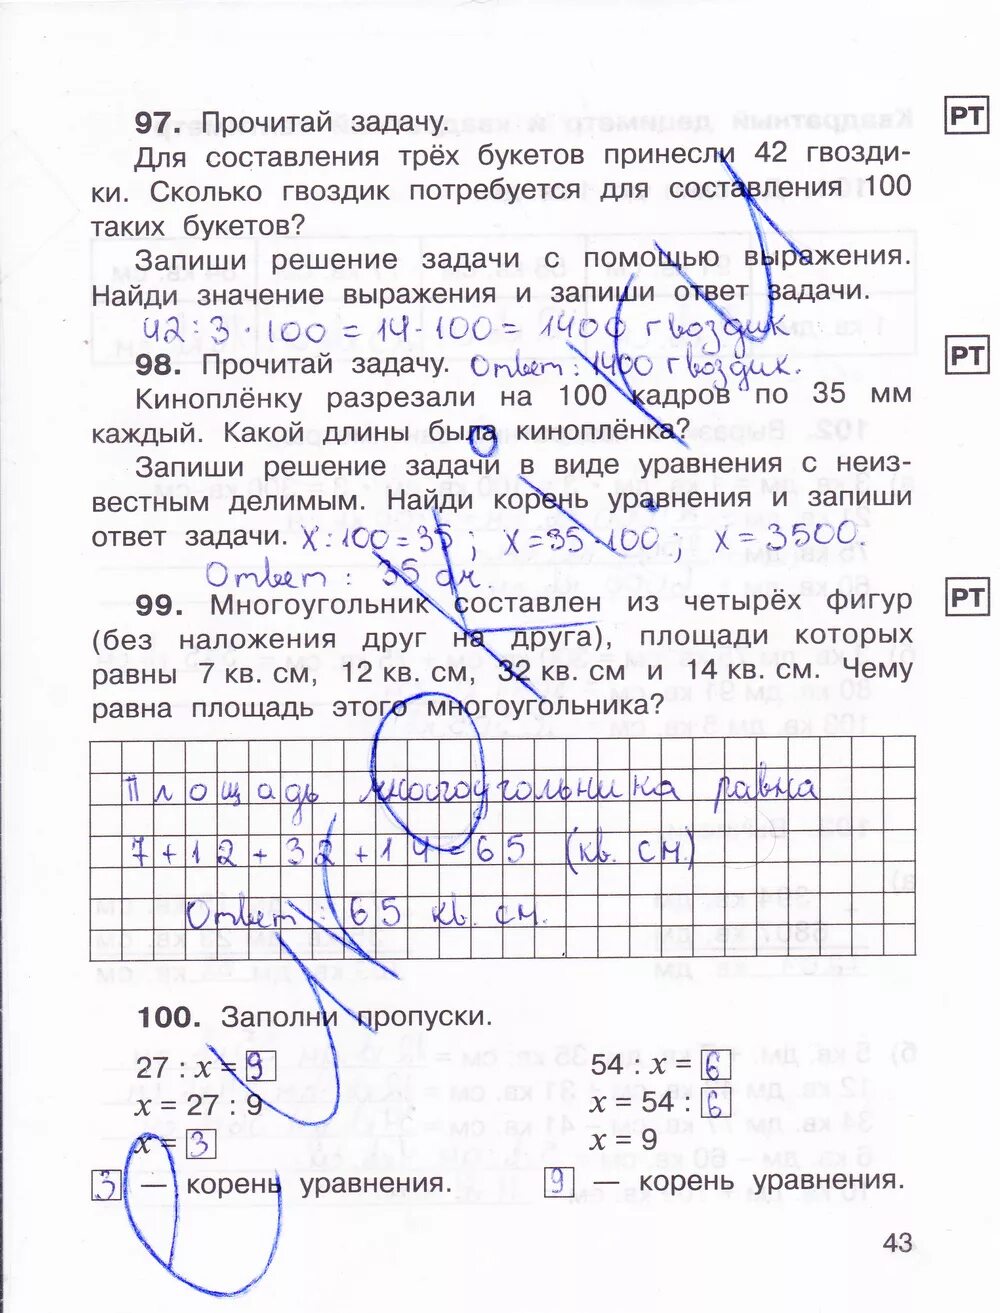 97. Прочитай задачу.
РТ
Для составления трёх букетов принесли 42 гвозди-
ки. Сколько гвоздик потребуется для составления 100
таких букетов?
Запиши решение задачи с помощью выражения.
Найди значение выражения и запиши ответ задачи.
42 : 3 · 100 = 14 · 100 = 1400 гвоздик
98. Прочитай задачу. Ответ : 1400 гвоздик.
РТ
Киноплёнку разрезали на 100 кадров по 35 мм
каждый. Какой длины была киноплёнка?
Запиши решение задачи в виде уравнения с неиз-
вестным делимым. Найди корень уравнения и запиши
ответ задачи. х : 100 = 35 ; х = 35 · 100 ; х = 3500.
Ответ : 35 дм.
99. Многоугольник составлен из четырёх фигур
РТ
(без наложения друг на друга), площади которых
равны 7 кв. см, 12 кв. см, 32 кв. см и 14 кв. см. Чему
равна площадь этого многоугольника?
Площадь многоугольника равна
7 + 12 + 32 + 14 = 65 (кв. см.)
Ответ : 65 кв. см.
100. Заполни пропуски.
27 : x = 9
54 : x = 6
x = 27 : 9
x = 54 : 6
x = 3
x = 9
3 — корень уравнения.
9 — корень уравнения.
43